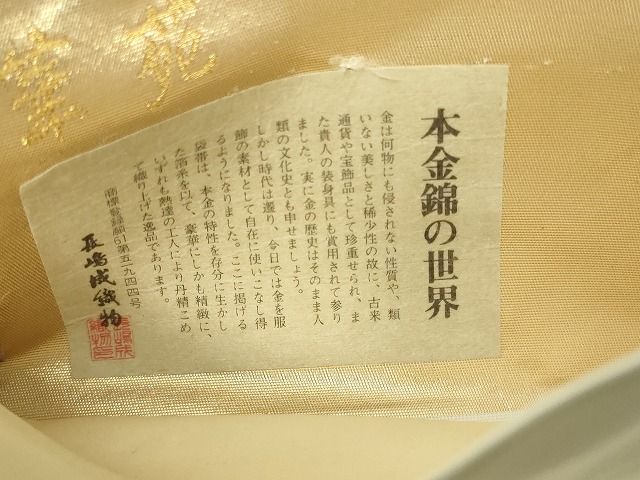 本金錦の世界
金は何物にも侵されない性質や、類
いない美しさと稀少性の故に、古来
通貨や宝飾品として珍重せられ、ま
た貴人の装身具にも賞用されて参り
ました。実に金の歴史はそのまま人
類の文化史とも申せましょう。
しかし時代は遷り、今日では金を服
飾の素材として自在に使いこなし得
るようになりました。ここに掲げる
袋帯は、本金の特性を存分に生かし
た箔糸を以て、豪華にしかも精緻に、
いずれも熟達の工人により丹精こめ
て織り上げた逸品であります。
商標登録願61第五九四四号
長嶋成織物